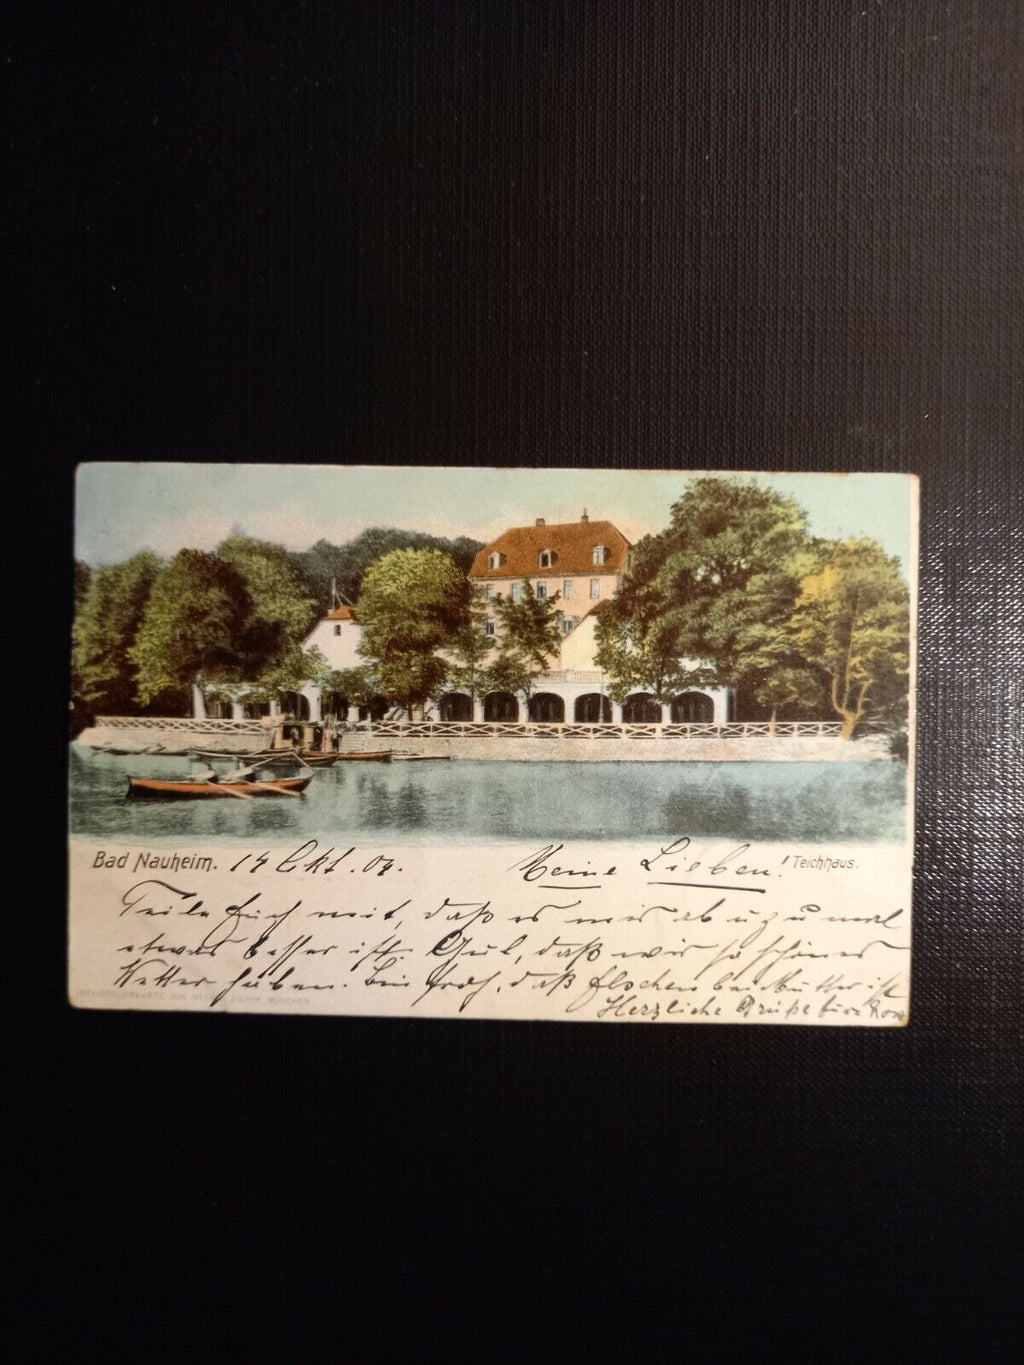 Bad Nauheim. 14 Okt. 04. Meine Lieben! Teichhaus.
Teile Euch mit, daß es mir ab u zu mal
etwas besser ist. Gut, daß wir so schönes
Wetter haben. Bin froh, daß bei Mutter ist
Herzliche Grüße
HELIOCOLORKARTE VON OTTMAR ZIEHER, MÜNCHEN